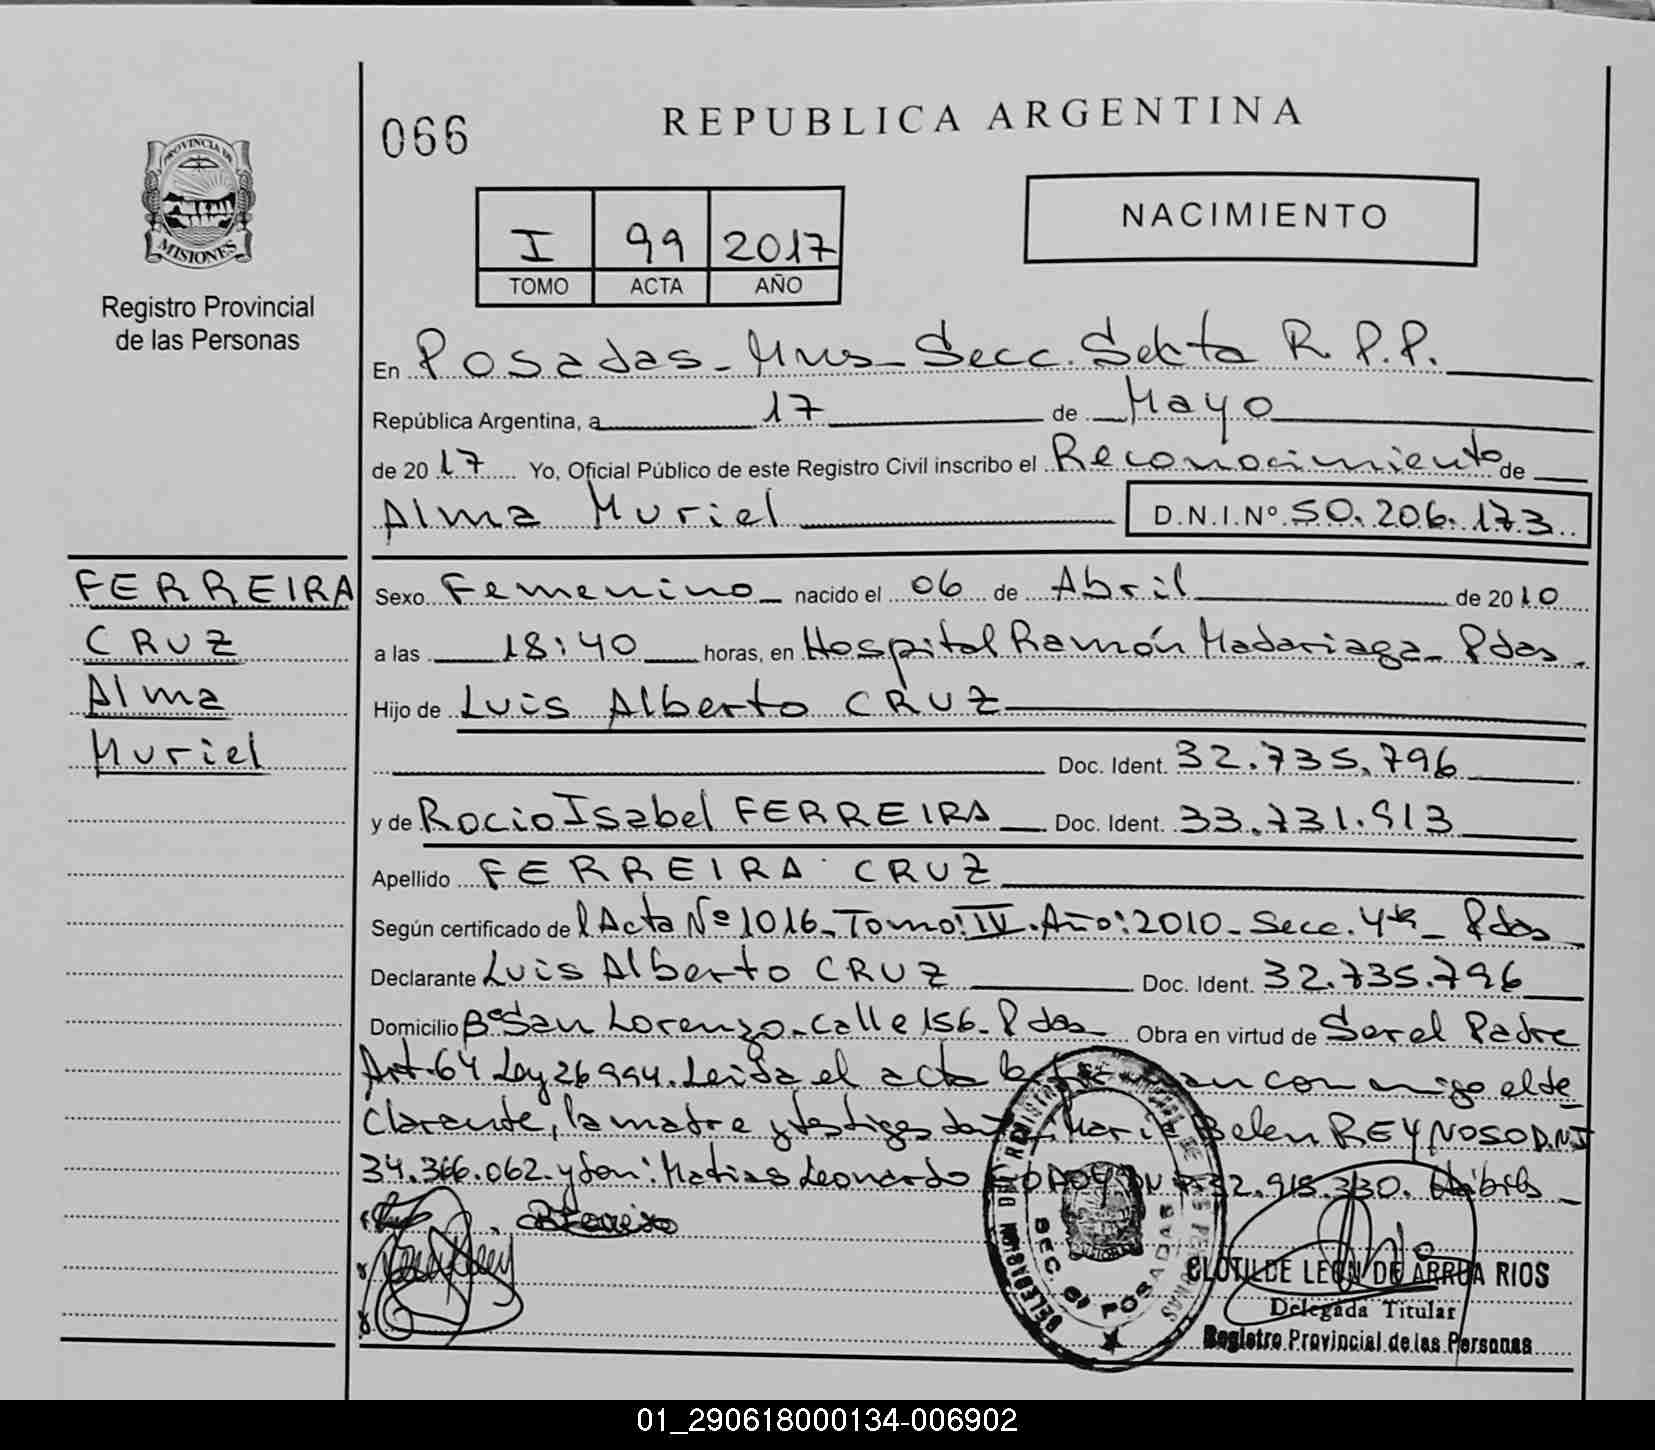 066
REPUBLICA ARGENTINA
PROVINCIA DE
MISIONES
Registro Provincial
de las Personas
NACIMIENTO
I 99 2017
TOMO ACTA AÑO
En Posadas - Mnes - Secc. Sekta R.P.P.
República Argentina, a 17 de Mayo
de 20 17 Yo, Oficial Público de este Registro Civil inscribo el Reconocimiento de
Alma Muriel D.N.I.Nº 50.206.173
FERREIRA
CRUZ
Alma
Muriel
Sexo Femenino nacido el 06 de Abril de 20 10
a las 18:40 horas, en Hospital Ramón Madariaga - Pdas.
Hijo de Luis Alberto CRUZ
Doc. Ident. 32.735.796
y de Rocio Isabel FERREIRA Doc. Ident. 33.731.913
Apellido FERREIRA CRUZ
Según certificado de l Acta Nº 1016 - Tomo: IV. Año: 2010 - Secc. 4ta - Pdas
Declarante Luis Alberto CRUZ Doc. Ident. 32.735.796
Domicilio Bº San Lorenzo - Calle 156 - Pdas Obra en virtud de Ser el Padre
Art. 64 Ley 26994. Leida el acta con migo el de
clarante, la madre y testigos Maria Belen REYNOSO D.N.I
34.366.062. y don: Matias Leonardo DNI 32.915.330. Hábiles
SEC. 6ª POSADAS
CLOTILDE LEON DE ARRUA RIOS
Delegada Titular
Registro Provincial de las Personas
01_290618000134-006902